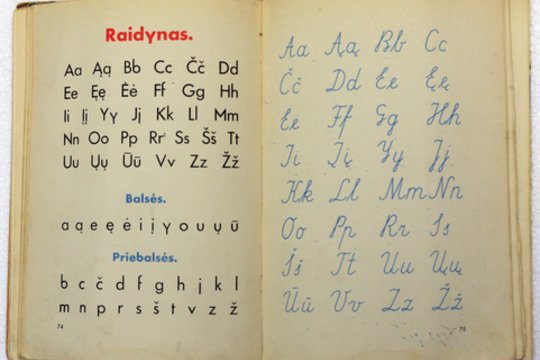 Raidynas.
Aa Ąą Bb Cc Čč Dd
Ee Ęę Ėė Ff Gg Hh
Ii Įį Yy Jj Kk Ll Mm
Nn Oo Pp Rr Ss Šš Tt
Uu Ųų Ūū Vv Zz Žž
Balsės.
a ą e ę ė i į y o u ų ū
Priebalsės.
b c č d f g h j k l
m n p r s š t v z ž
74
Aa Ąą Bb Cc
Čč Dd Ee Ęę
Ėė Ff Gg Hh
Ii Įį Yy Jj
Kk Ll Mm Nn
Oo Pp Rr Ss
Šš Tt Uu Ųų
Ūū Vv Zz Žž
75